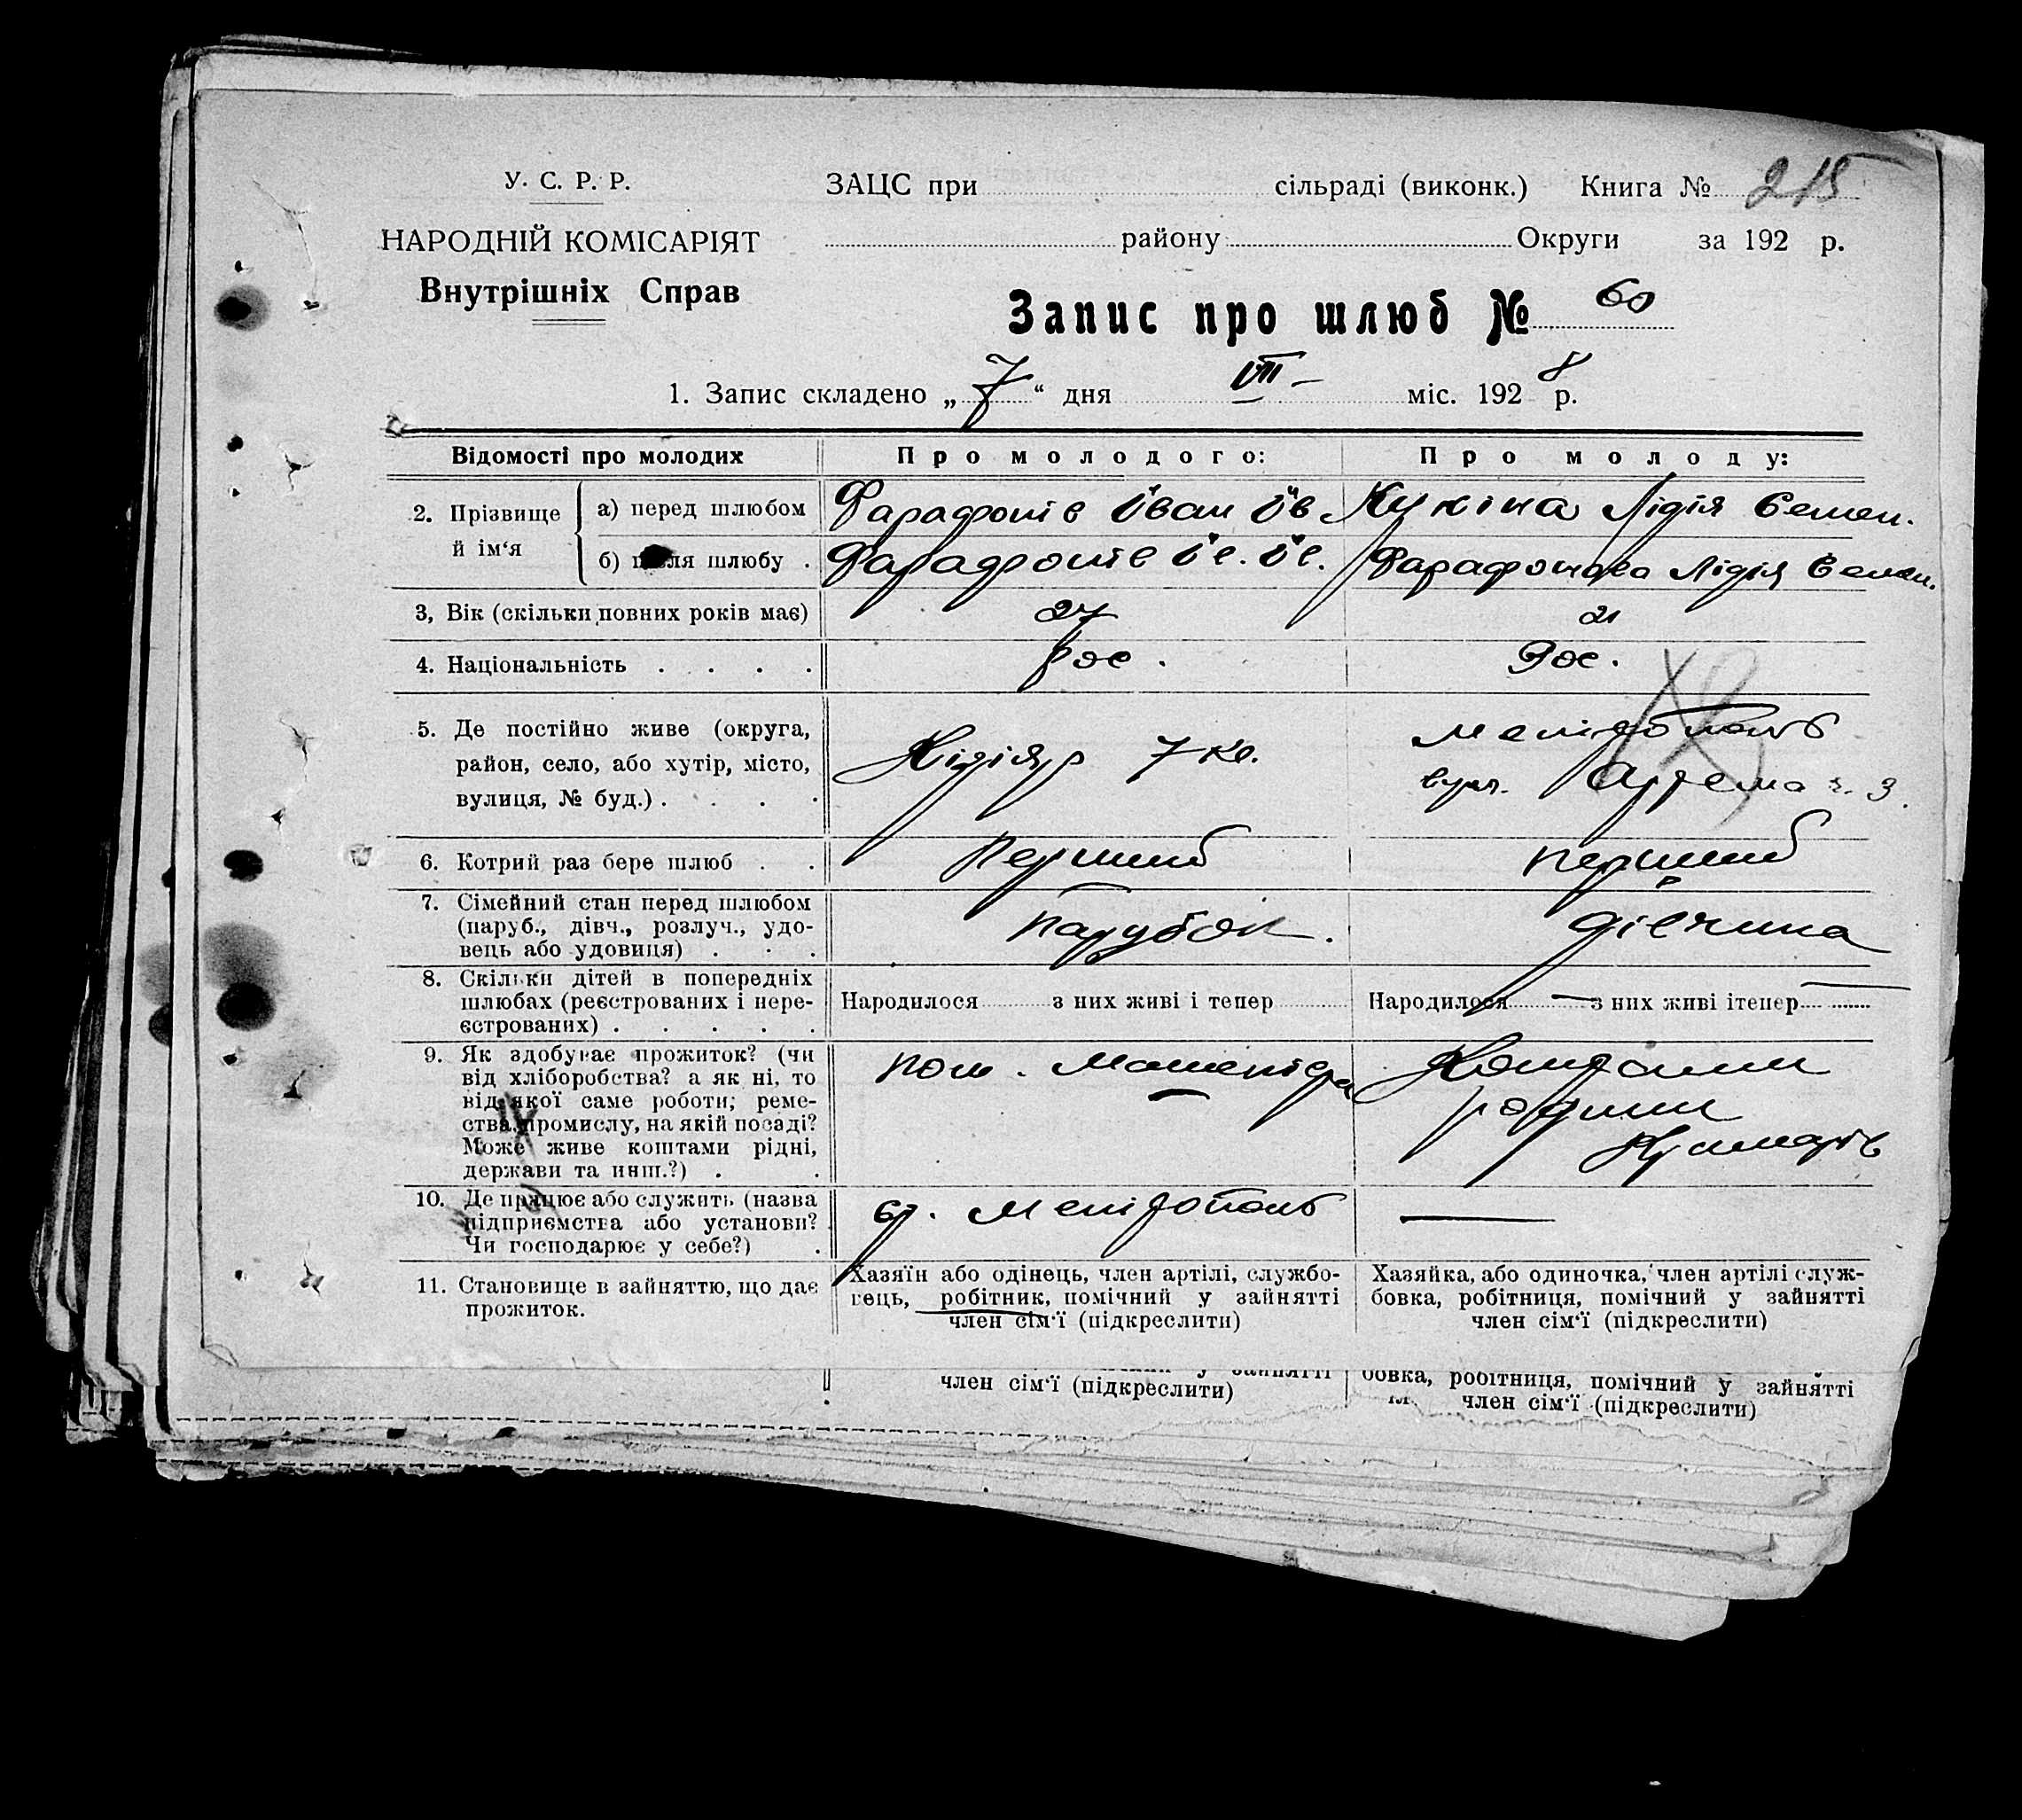 У. С. Р. Р.
НАРОДНІЙ КОМІСАРІЯТ
Внутрішніх Справ
ЗАЦС при сільраді (виконк.) Книга № 215
району Округи за 192 р.
Запис про шлюб № 60
1. Запис складено „7“ дня VII міс. 1928 р.
Відомості про молодих Про молодого: Про молоду:
2. Прізвище й ім‘я
а) перед шлюбом Фарафонів Іван Ів. Кукіна Лідія Семен.
б) після шлюбу . Фарафонів Ів. Ів. Фарафонова Лідія Семен.
3, Вік (скільки повних років має) 27 21
4. Національність . . . . рос. Рос.
5. Де постійно живе (округа,
район, село, або хутір, місто,
вулиця, № буд.) . . . .
Кізіяр 7 кв.
Мелітополь
вул. Артема ч. 3.
6. Котрий раз бере шлюб . . Перший перший
7. Сімейний стан перед шлюбом
(паруб., дівч., розлуч., удо-
вець або удовиця) . . .
парубок. дівчина
8. Скільки дітей в попередніх
шлюбах (реєстрованих і нере-
єстрованих) . . . . .
Народилося з них живі і тепер
Народилося — з них живі ітепер —
9. Як здобуває прожиток? (чи
від хліборобства? а як ні, то
від якої саме роботи; реме-
ства, промислу, на якій посаді?
Може живе коштами рідні,
держави та инш.?) . .
пом. Машиніста
Коштами
родини
10. Де працює або служить (назва
підприємства або установи?
Чи господарює у себе?) .
ст. Мелітополь —
11. Становище в зайняттю, що дає
прожиток.
Хазяїн або одінець, член артілі, службо-
вець, робітник, помічний у зайнятті
член сім‘ї (підкреслити)
Хазяйка, або одиночка, член артілі служ-
бовка, робітниця, помічний у зайнятті
член сім‘ї (підкреслити)
у зайнятті
член сім‘ї (підкреслити)
бовка, робітниця, помічний у зайнятті
член сім‘ї (підкреслити)